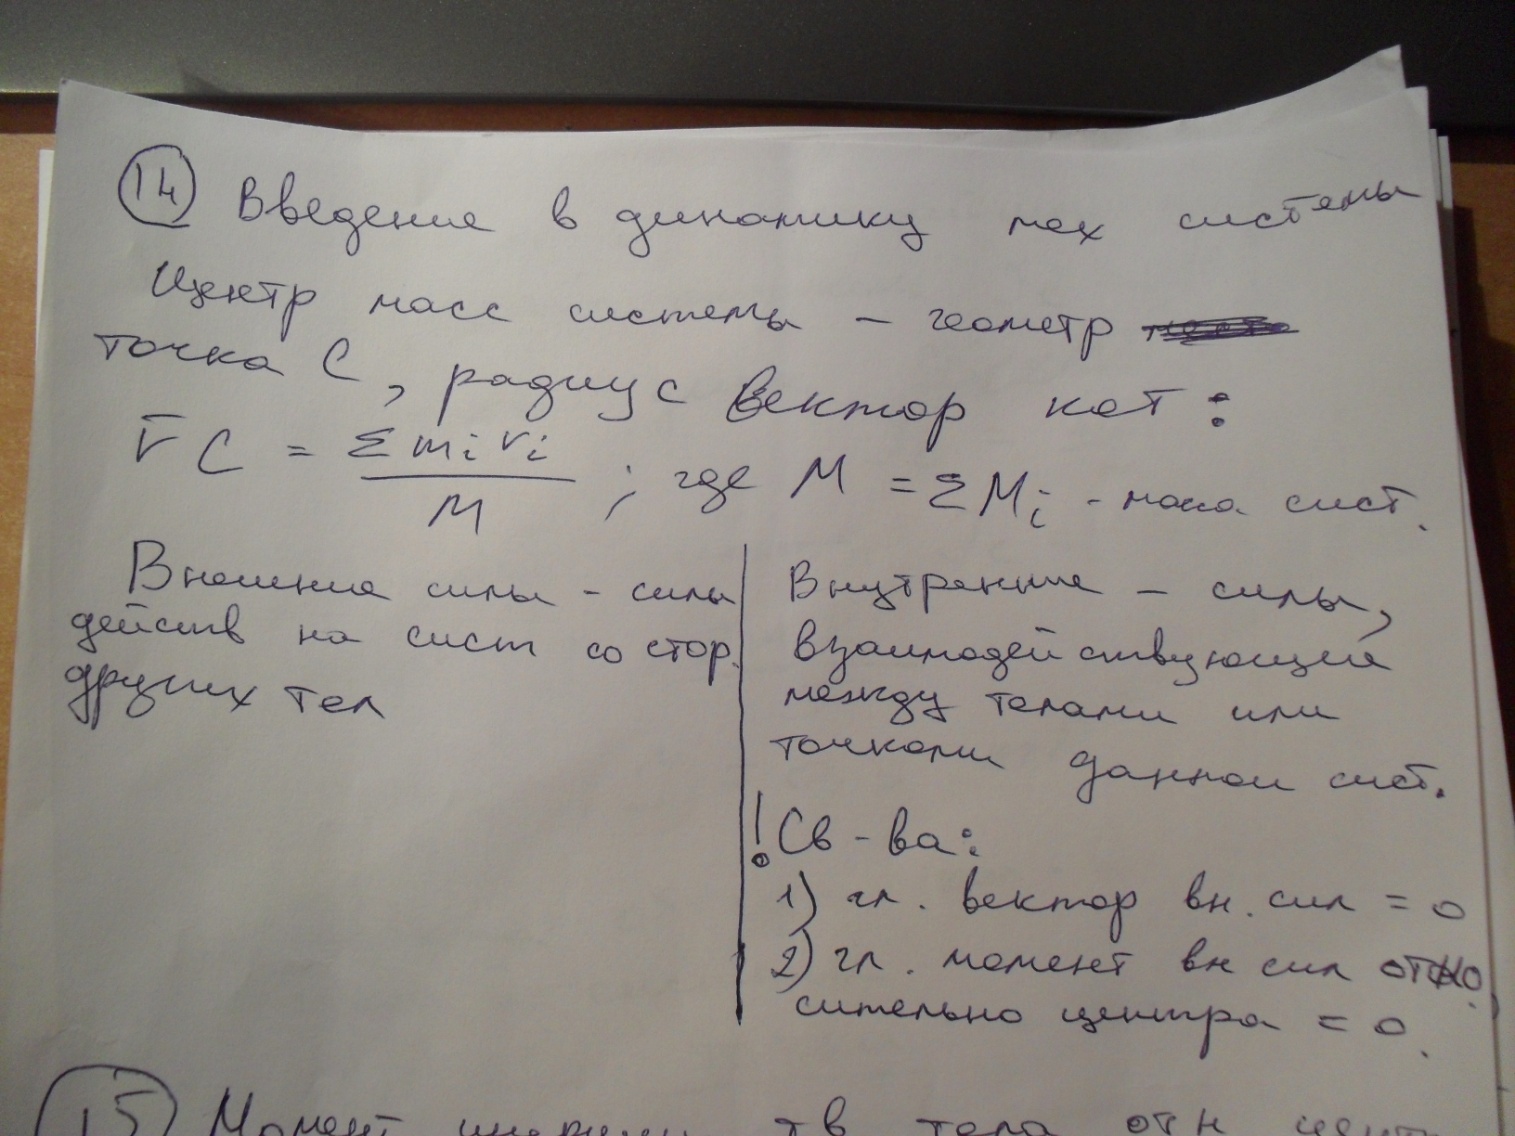 14 Введение в динамику мех системы
Центр масс системы – геометр
точка С, радиус вектор кот:
r̄ C = Σ mᵢ rᵢ / M ; где M = Σ Mᵢ - масса сист.
Внешние силы - силы
действ на сист со стор.
других тел
Внутренние – силы,
взаимодействующие
между телами или
точками данной сист.
! Св-ва:
1) гл. вектор вн. сил = 0
2) гл. момент вн сил отно
сительно центра = 0.
15 Момент инерции тв тела отн центр